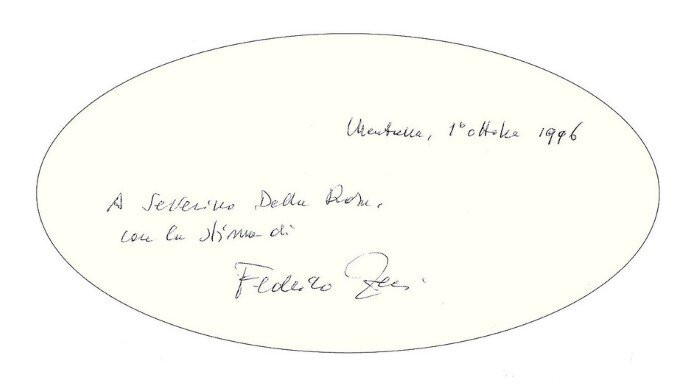 Mentana, 1° ottobre 1996
A Severino Della
con la stima di
Federico Zeri